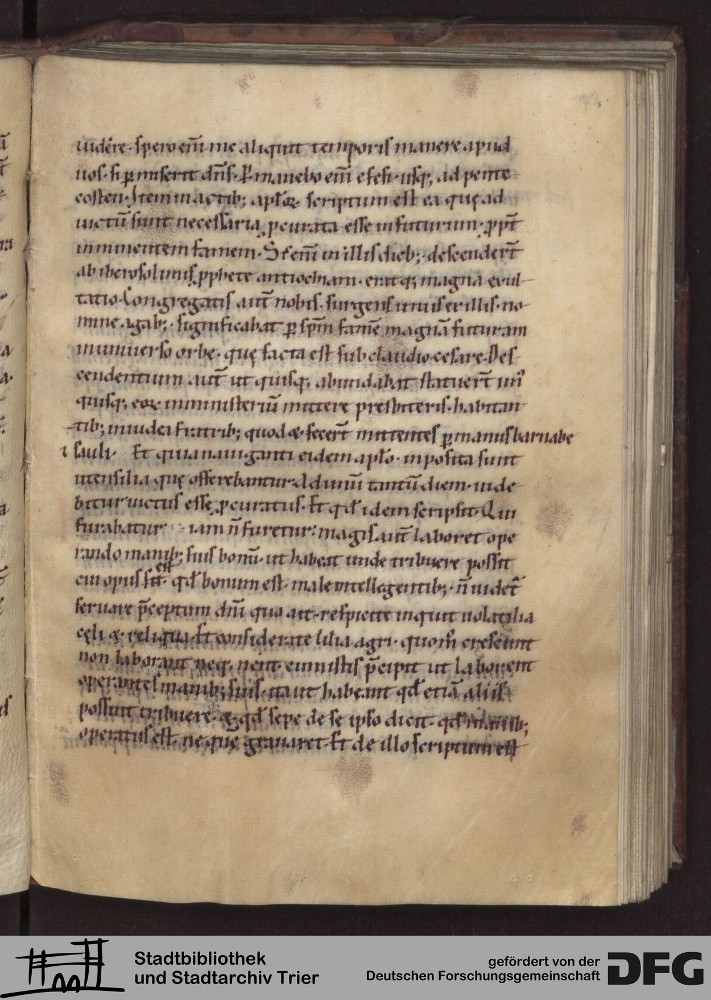 uidere. spero eni̅ me aliquit temporis manere apud
uos. si p̱miserit dn̅s. P̱manebo eni̅ efesi. usq; ad pente
costen. Item in actib; apl̅oꝝ scriptum est ea quę ad
uictu̅ sunt necessaria, ꝓcurata esse in futurum. ꝓpt̅
imminentem famem. Sic eni̅ in illis dieb; descender̅t
ab iherosolimis ꝓphete antiochiam. erat q; magna exul
tatio. Congregatis aut̅ nobis. surgens unus ex illis. no
mine agab; significabat p̱ sp̅m fame̅ magna̅ futuram
in uniuerso orbe. quę facta est sub claudio cesare. Dis
cendentium aut̅ ut quisq; abundabat statuer̅t un̅
quisq; eoꝝ in ministeriu̅ mittere presbiteris. habitan
tib; in iudea fratrib; quod & fecer̅t mittentes p̱ manus barnabe
⁊ sauli. Et quia nauiganti eidem apl̅o. inposita sunt
utensilia quę offerebantur ad unu̅ tantu̅ diem. uide
bitur uictus esse ꝓcuratus. Et qd̅ idem scripsit. Qui
furabatur iam n̅ furetur. magis aut̅ laboret ope
rando manib; suis bonu̅. ut habeat unde tribuere possit
cui opus est qd̅ bonum est male intellegentib; n̅ uidet̅
seruare p̅ceptum dn̅i quo ait. respicite inquit uolatilia
cęli & reliqua. Et considerate lilia agri. quom̅ crescunt
non laborant neq; nent. cum istis p̅cipit ut laborent
operantes manib; suis. ita ut habeant qd̅ etia̅ aliis
possint tribuere. & qd̅ sepe de se ipso dicit. qd̅ manib;
operatus est. ne quę grauaret. Et de illo scriptum est
Stadtbibliothek
und Stadtarchiv Trier
gefördert von der
Deutschen Forschungsgemeinschaft
DFG